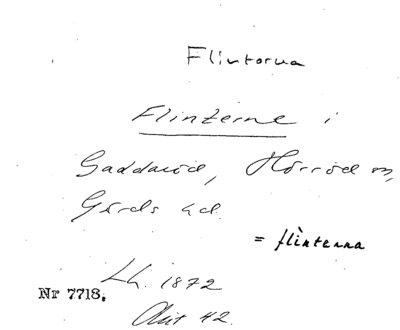 Flintorna
Flinterne i
Gaddaröd, Hörröd sn,
Gärds hd.
= flinterna
Lh. 1872
Nr 7718.
Akt 42.